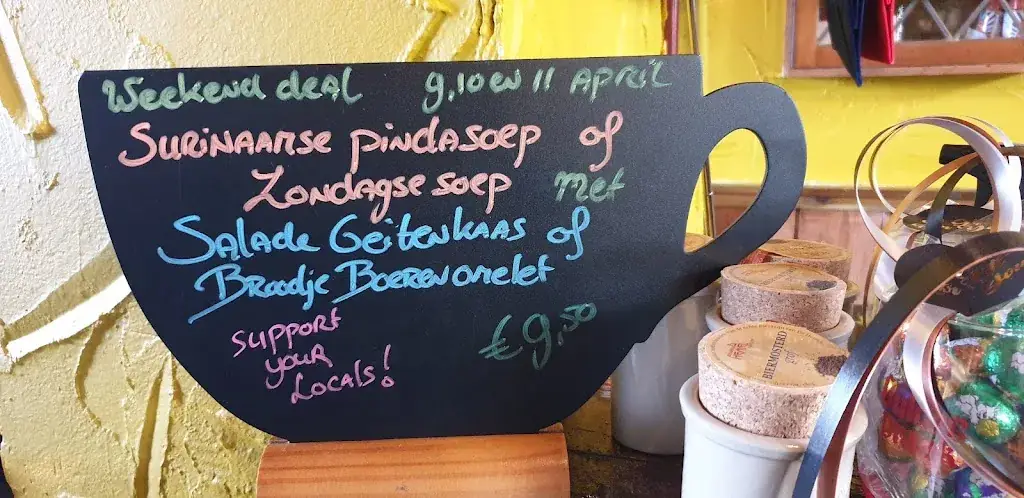 Weekend deal 9, 10 en 11 April
Surinaamse pindasoep of
Zondagse soep met
Salade Geitenkaas of
Broodje Boerenomelet
Support
your
Locals!
€9,50
BIERMOSTERD